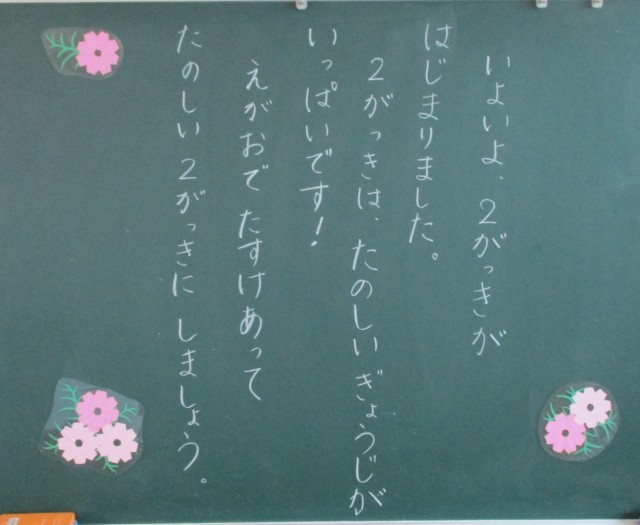 いよいよ、2がっきが
はじまりました。
2がっきは、たのしいぎょうじが
いっぱいです!
えがおで たすけあって
たのしい 2がっきに しましょう。